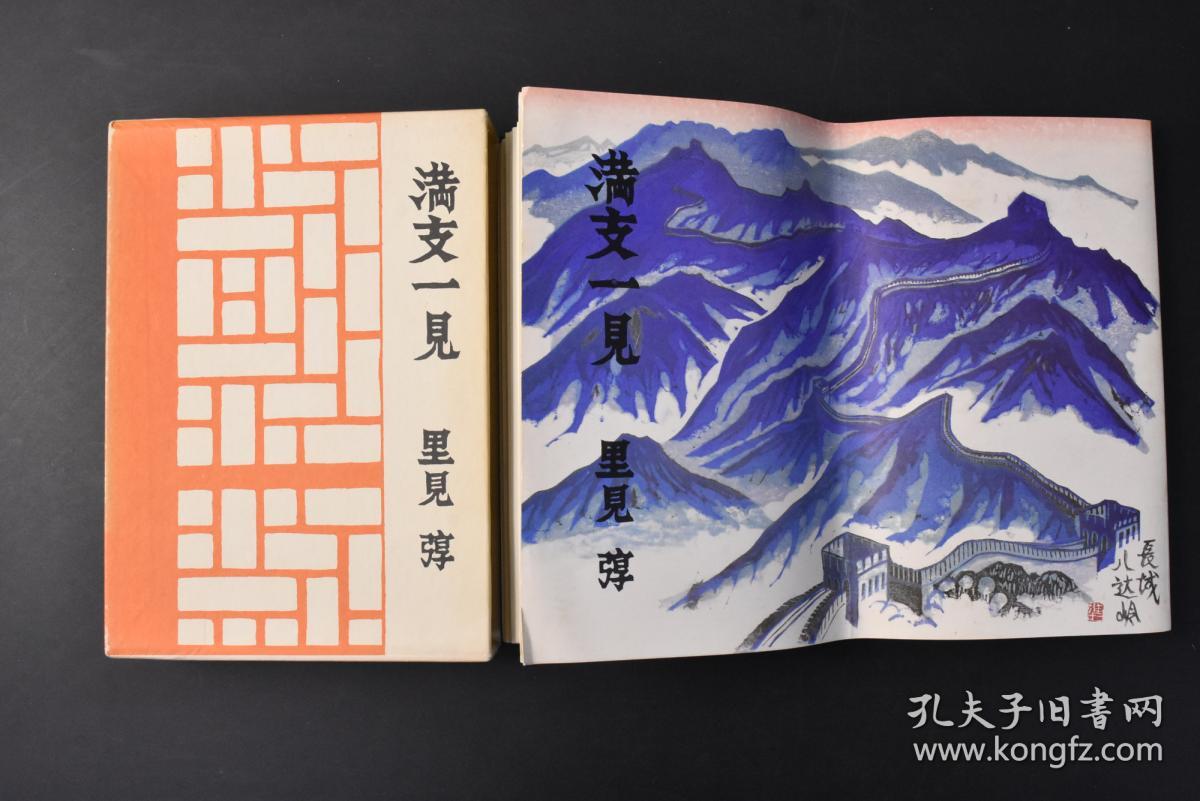 満支一見
里見 弴
満支一見
里見 弴
長城
八达岭
孔夫子旧书网
www.kongfz.com